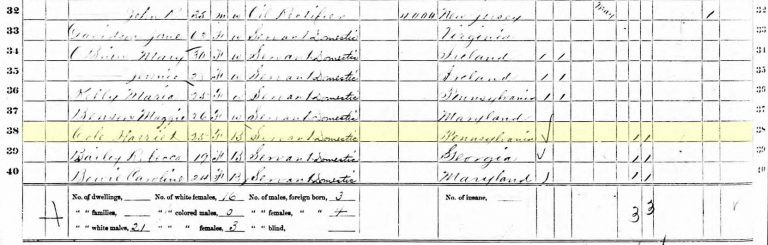 32 John P 25 m w Oil Rectifier 4000 New Jersey May 1 32
33 Davidson Jane 62 F w Servant Domestic Virginia 33
34 O'Brien Mary 30 F w Servant Domestic Ireland 1 1 34
35 Jennie 2 F w Servant Domestic Ireland 1 1 35
36 Kelly Maria 25 F w Servant Domestic Pennsylvania 1 1 36
37 Benson Maggie 26 F w Servant Domestic Maryland
38 Cole Harriet 25 F B Servant Domestic Pennsylvania 1 1 38
39 Bailey Rebecca 19 F B Servant Domestic Georgia 1 1 39
40 Caroline 24 F B Servant Domestic Maryland 1 1 40
No. of dwellings, No. of white females, 16 No. of males, foreign born, 3 No. of insane, 3 3
" " families, " " colored males, 0 " " females, " " 4
" " white males, 21 " " " females, 3 " " blind,